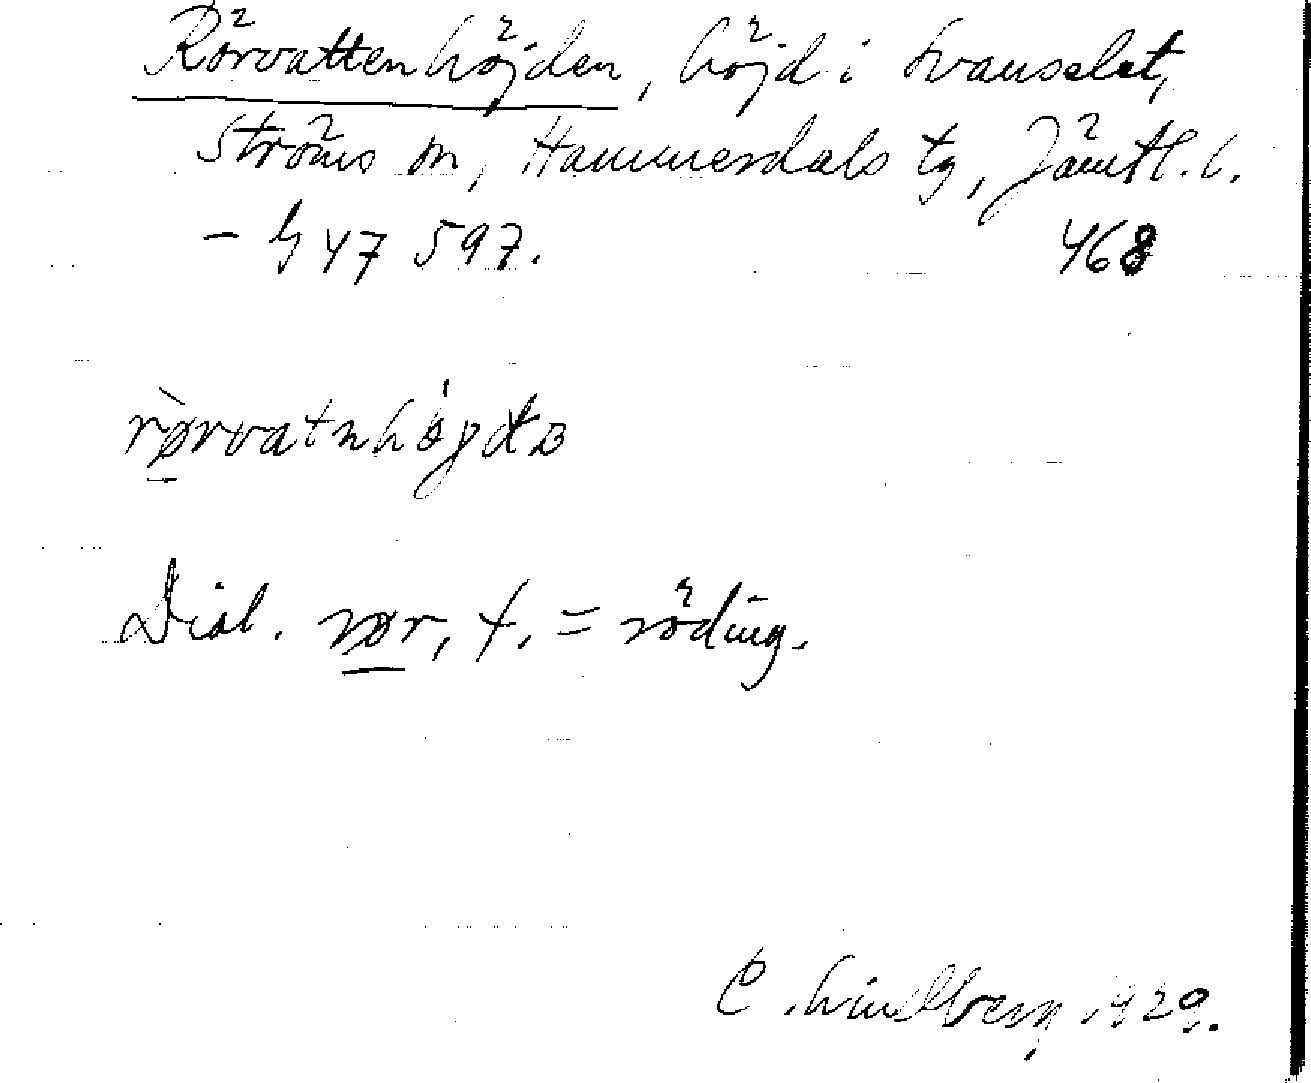 Rörvattenhöjden, höjd i Svanselet,
Ströms sn, Hammerdals tg, Jämtl. l.
– G 47 597. 468
rørvatnhøgda
Dial. rør, f. = röding.
C. Lindberg 1929.